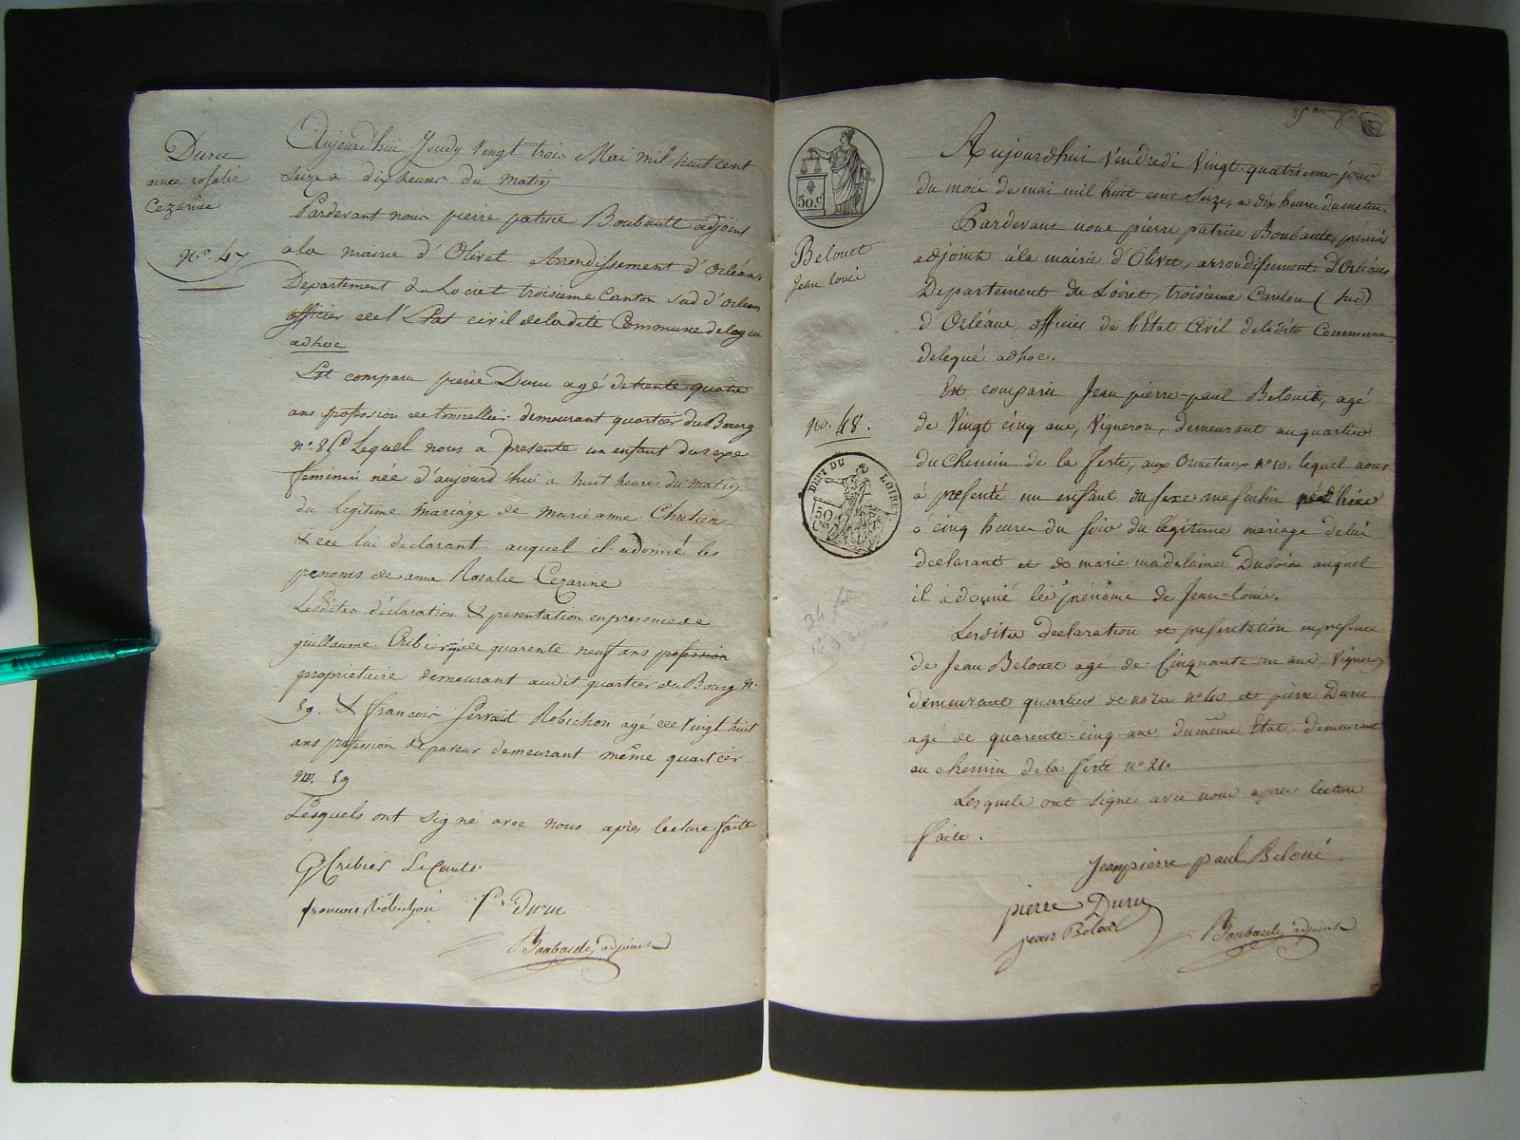 Duru
anne rosalie
Cezarine
No. 47
Aujourd'hui Jeudy vingt trois Mai mil huit cent
Seize a dix heures du matin
Pardevant nous pierre patrice Boubault adjoint
a la mairie d'Olivet Arrondissement d'Orléans
Departement du Loiret troisieme Canton Sud d'orleans
officier de l'Etat civil de la dite Commune
adhoc
Est comparu pierre Duru agé de trente quatre
ans profession de tonnellier demeurant quartier du Bourg
Lequel nous a presenté un enfant du sexe
feminin née d'aujourd'hui a huit heures du matin
du légitime mariage de marie anne
& de lui declarant auquel il a donné les
penoms de anne Rosalie Cezarine
Lesdites déclaration & presentation en presence de
guillaume Cribier agé de quarente neuf ans profession
propriétaire demeurant audit quartier du Bourg n°.
89. & francois Robichon agé de vingt huit
ans profession demeurant même quartier
no. 89
Lesquels ont signé avec nous après lecture faite
G Cribier
francois Robichon P. Duru
Boubault adjoint
50.C
Belouet
Jean louis
no. 48.
DEPT DU LOIRET
50
Aujourdhui Vendredi Vingt-quatrieme jour
du mois de mai mil huit cent Seize, a dix heures du matin.
Pardevant nous pierre patrice Boubault, premier
adjoint à la mairie d'Olivet, arrondissement d'Orléans
Departement du Loiret, troisieme Canton (Sud)
d'Orléans, officier de l'Etat Civil de ladite Commune
delegué adhoc.
Est comparu Jean pierre-paul Belouet, agé
de Vingt cinq ans, Vigneron, demeurant au quartier
du Chemin de la ferté, aux n° 10. lequel nous
à presenté un enfant du sexe masculin né d'hier
a cinq heures du soir du légitime mariage de lui
declarant et de marie madelaine Dubois auquel
il à donné les prénoms de Jean-louis.
Lesdites declaration et presentation en presence
de Jean Belouet agé de Cinquante un ans Vigneron
demeurant quartier de n° 40 et pierre Duru
agé de quarente-cinq ans du même Etat demeurant
au chemin de la ferté n° 21.
Lesquels ont signé avec nous après lecture
faite.
Jean pierre paul Beloué.
pierre Duru
jean Beloué
Boubault, adjoint